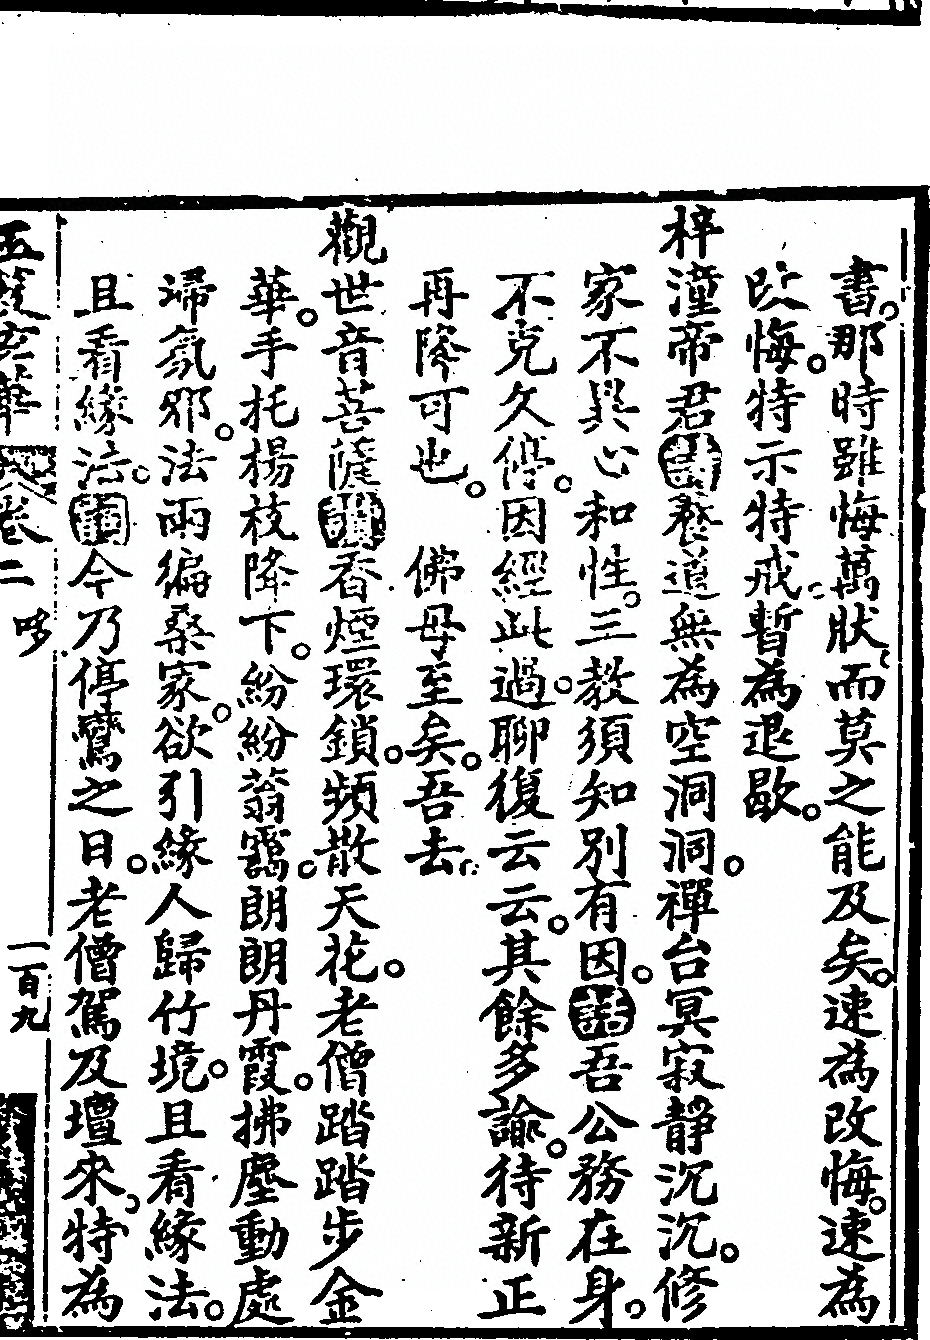 書。那時雖悔萬狀、而莫之能及矣。速為改悔。速為
改悔。特示特戒。暫為退歇。
梓潼帝君詩養道無為空洞洞。禪台冥寂靜沉沉。修
家不異心和性。三教須知別有因。話吾公務在身。
不克久停。因經此過。聊復云云。其餘多諭。待新正
再降可也。　佛母至矣。吾去。
觀世音菩薩讚香煙環鎖。頻散天花。老僧踏踏步金
華。手托楊枝降下。紛紛蓊靄。朗朗丹霞。拂塵動處
掃氛邪。法雨徧桑家。欲引緣人歸竹境。且看緣法。
且看緣法。今乃停鸞之日。老僧駕及壇來、特為
卷二
一百九